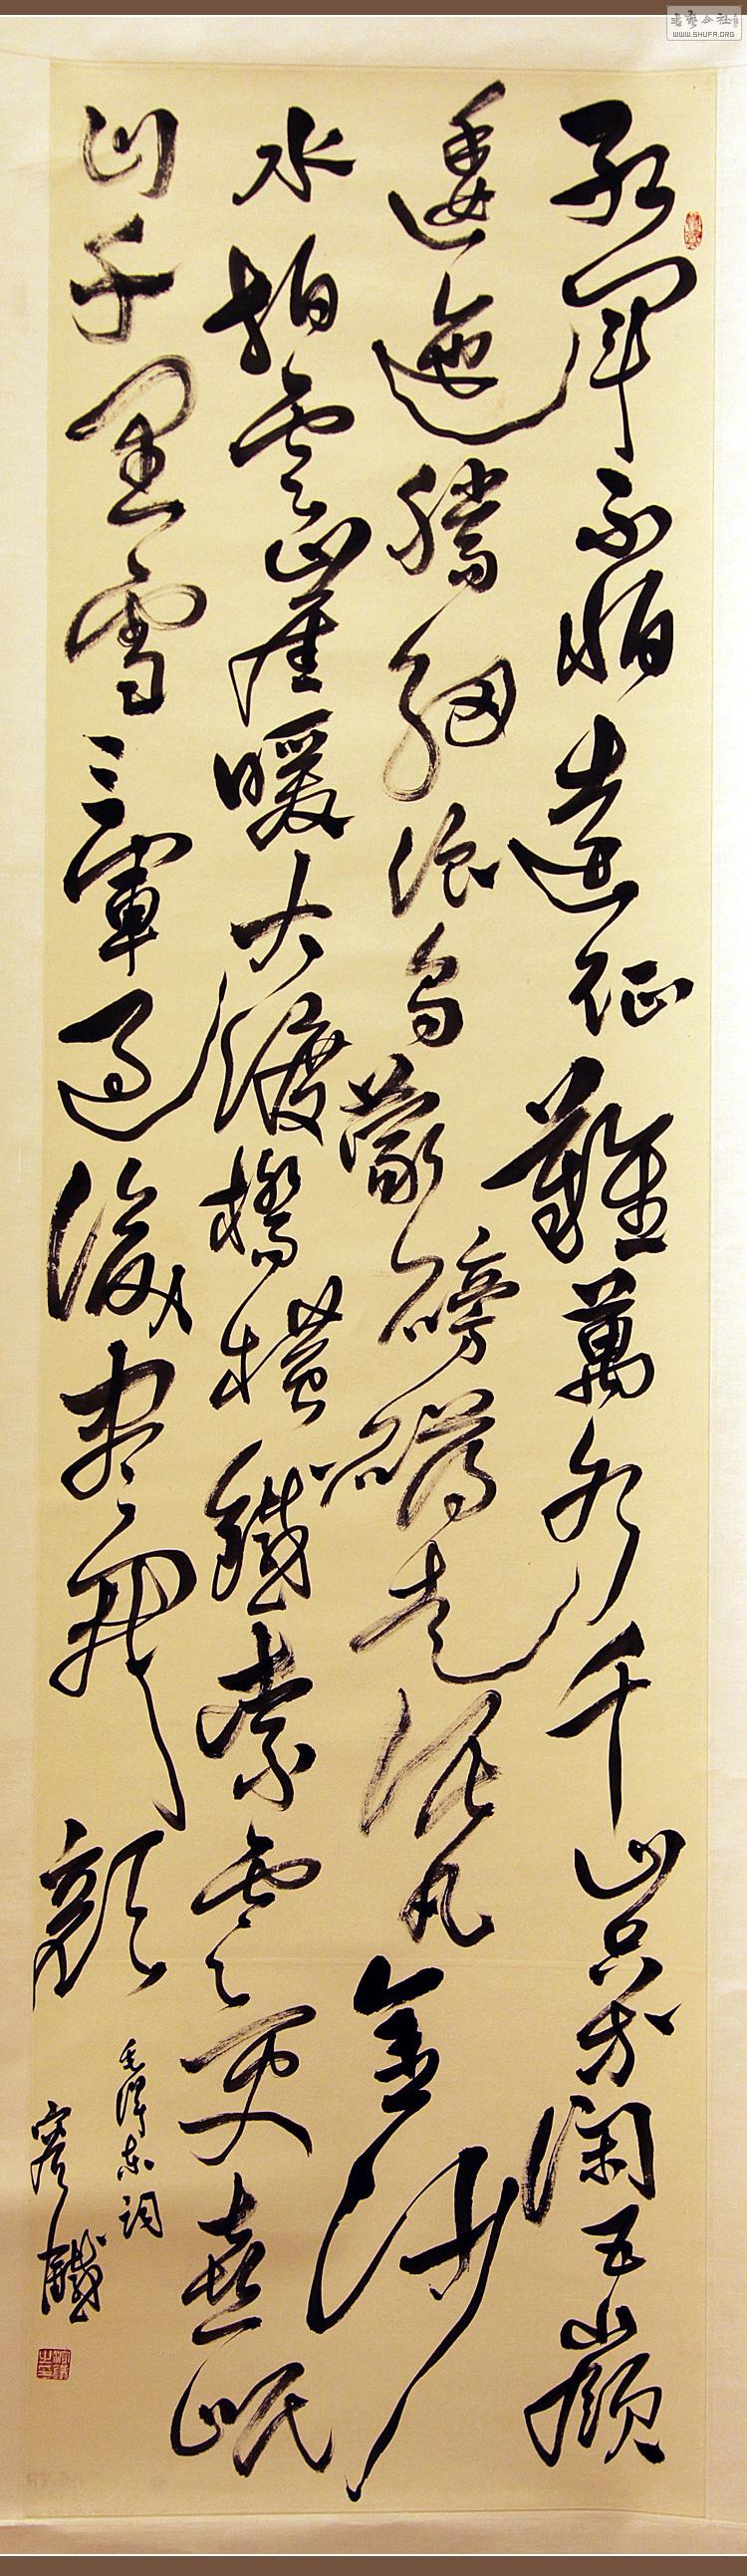 紅軍不怕遠征難萬水千山只等闲五嶺
逶迤騰細浪烏蒙磅礴走泥丸金沙
水拍雲崖暖大渡橋横鐵索寒更喜岷
山千里雪三軍過後盡開顔
毛澤东詞
鐵
书艺公社
WWW.SHUFA.ORG